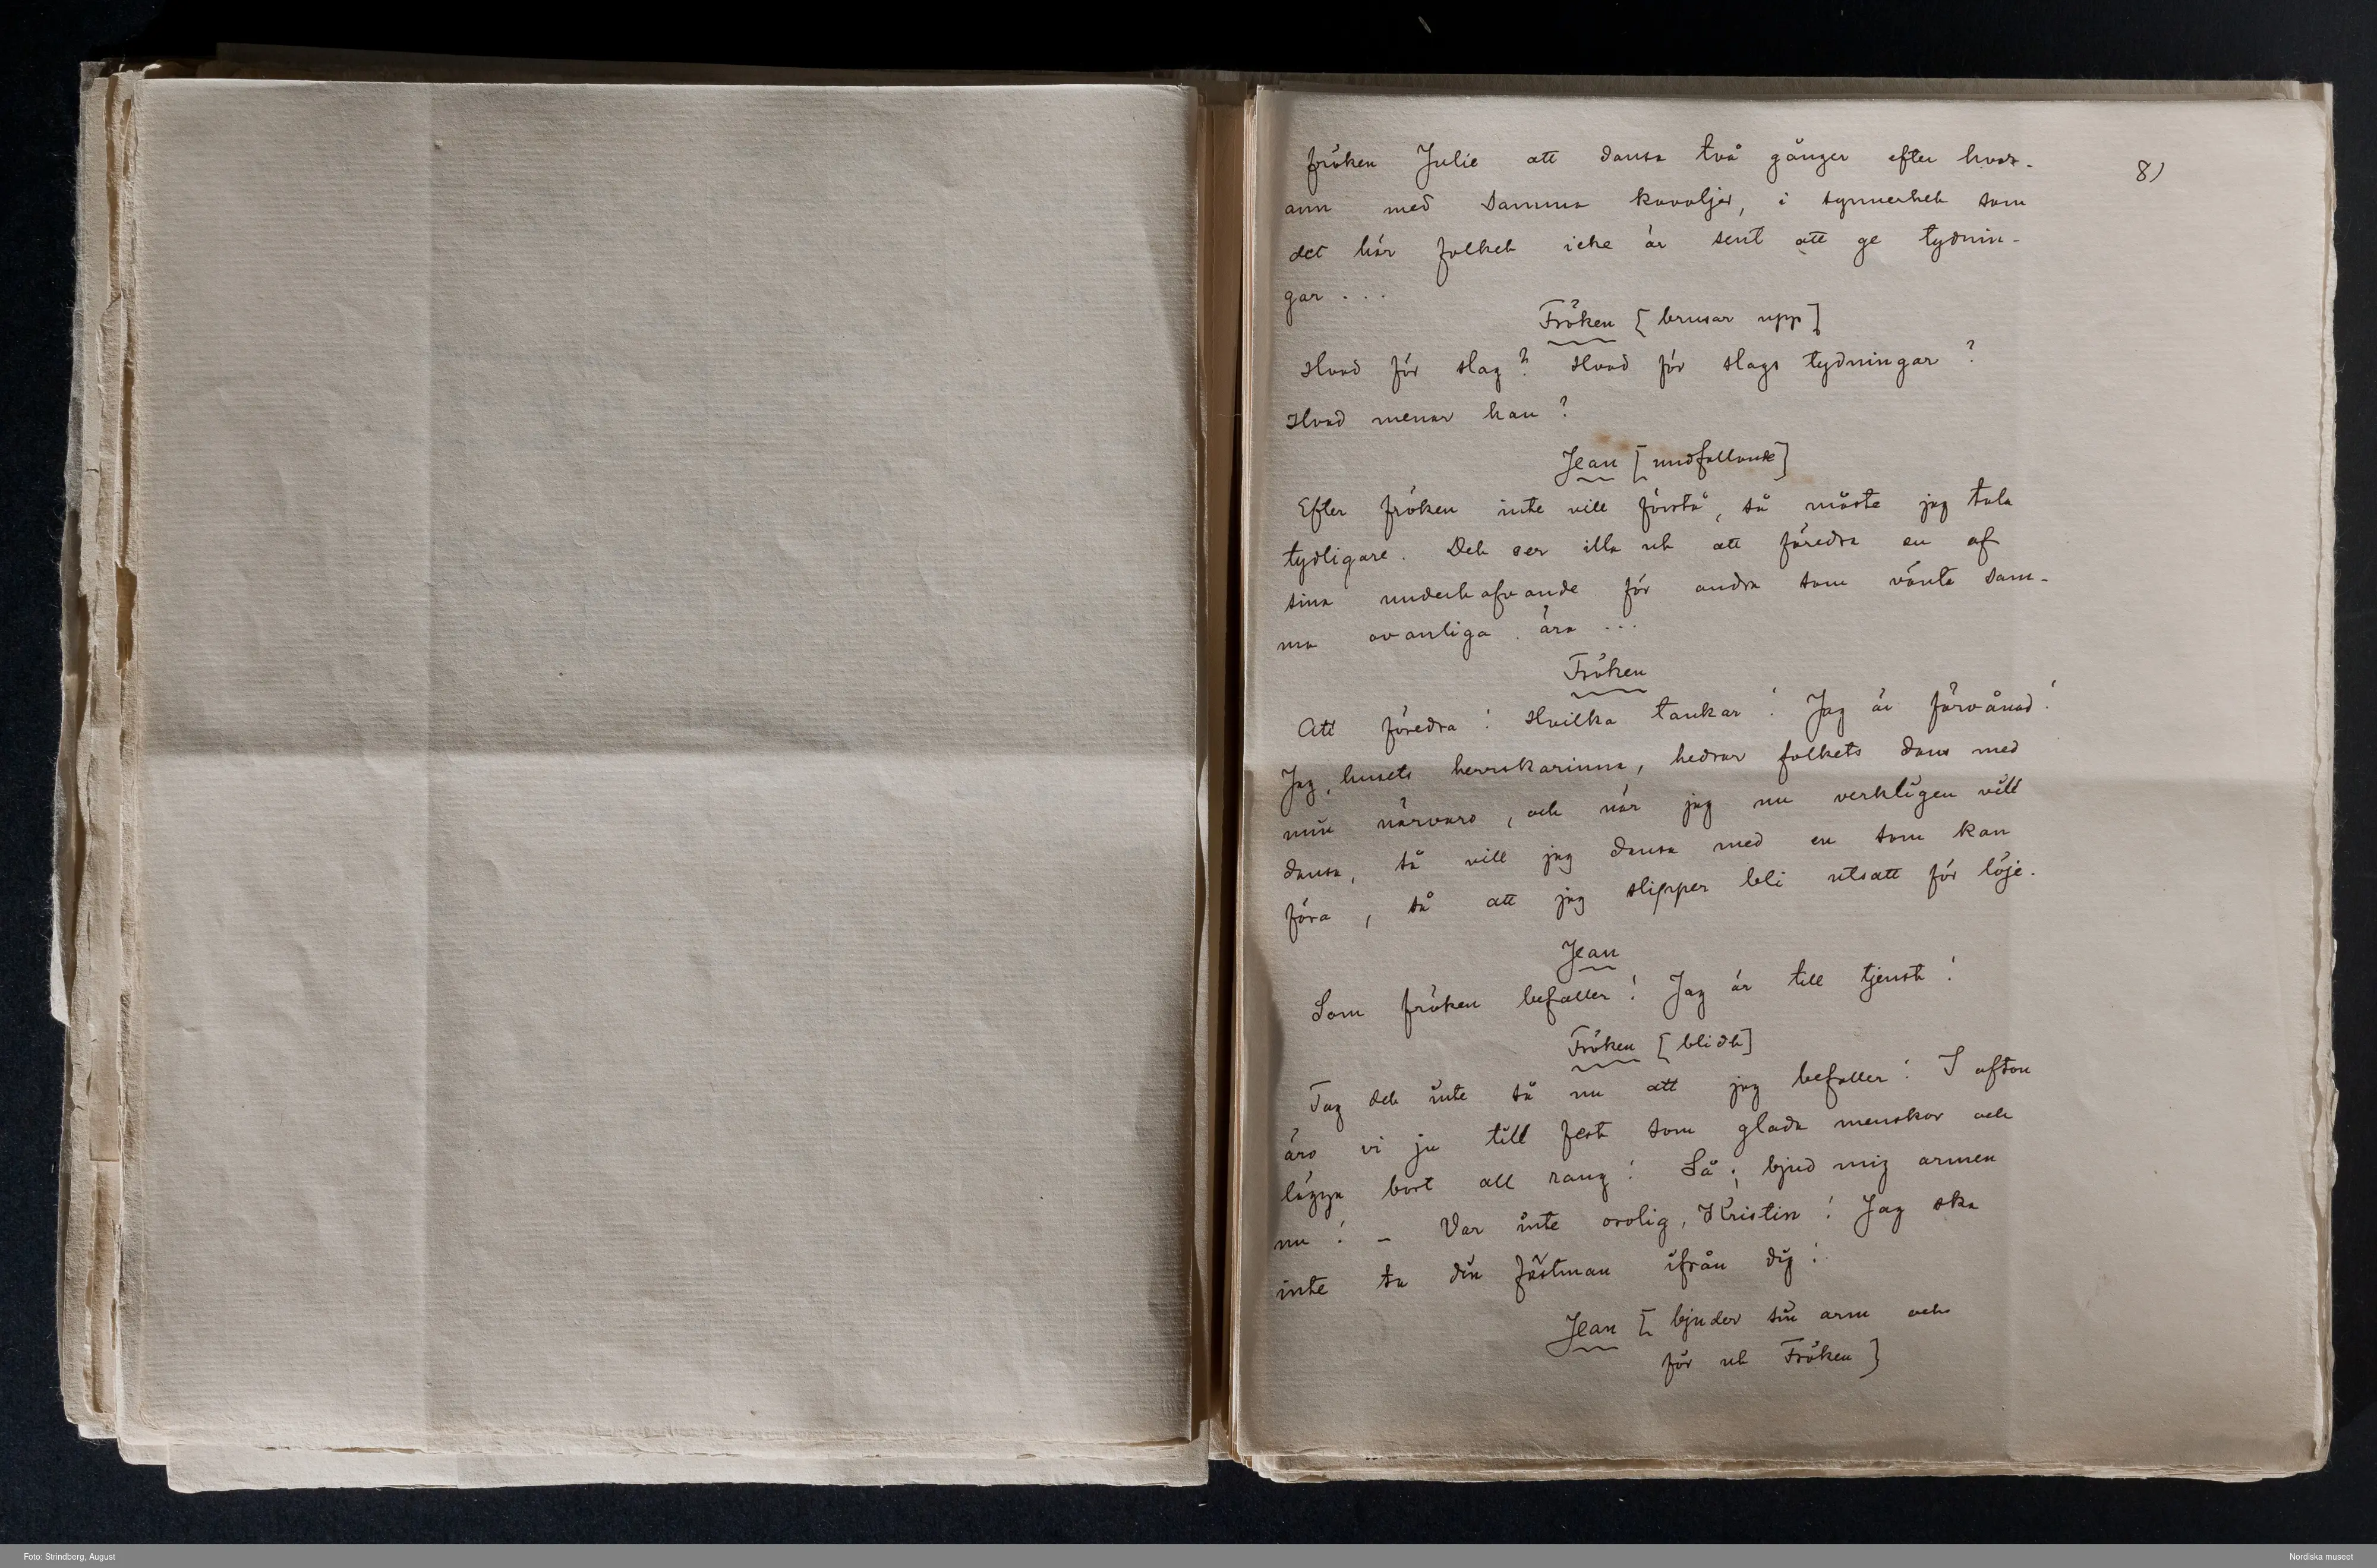 fröken Julie att dansa två gånger efter hvar-
8)
ann med samma kavaljer, i synnerhet som
det här folket icke är sent att ge tydnin-
gar ...
Fröken [brusar upp]
Hvad för slag? Hvad för slags tydningar?
Hvad menar han?
Jean [undfallande]
Efter fröken inte vill förstå, så måste jag tala
tydligare. Det ser illa ut att föredra en af
sina underhafvande för andra som vänta sam-
ma ovanliga ära ...
Fröken
Att föredra! Hvilka tankar! Jag är förvånad!
Jag, husets herrskarinna, hedrar folkets dans med
min närvaro, och när jag nu verkligen vill
dansa, så vill jag dansa med en som kan
föra, så att jag slipper bli utsatt för löje.
Jean
Som fröken befaller! Jag är till tjenst!
Fröken [blidt]
Tag det inte så nu att jag befaller! I afton
äro vi ju till fest som glada menskor och
lägga bort all rang! Så; bjud mig armen
nu! – Var inte orolig, Kristin! Jag ska
inte ta din fästman ifrån dig!
Jean [bjuder sin arm och
för ut Fröken]
Foto: Strindberg, August
Nordiska museet